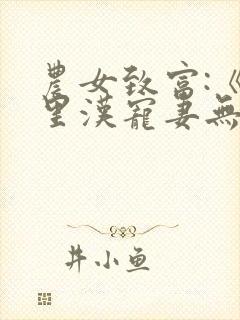 農女致富:
里漢寵妻無
井小鱼